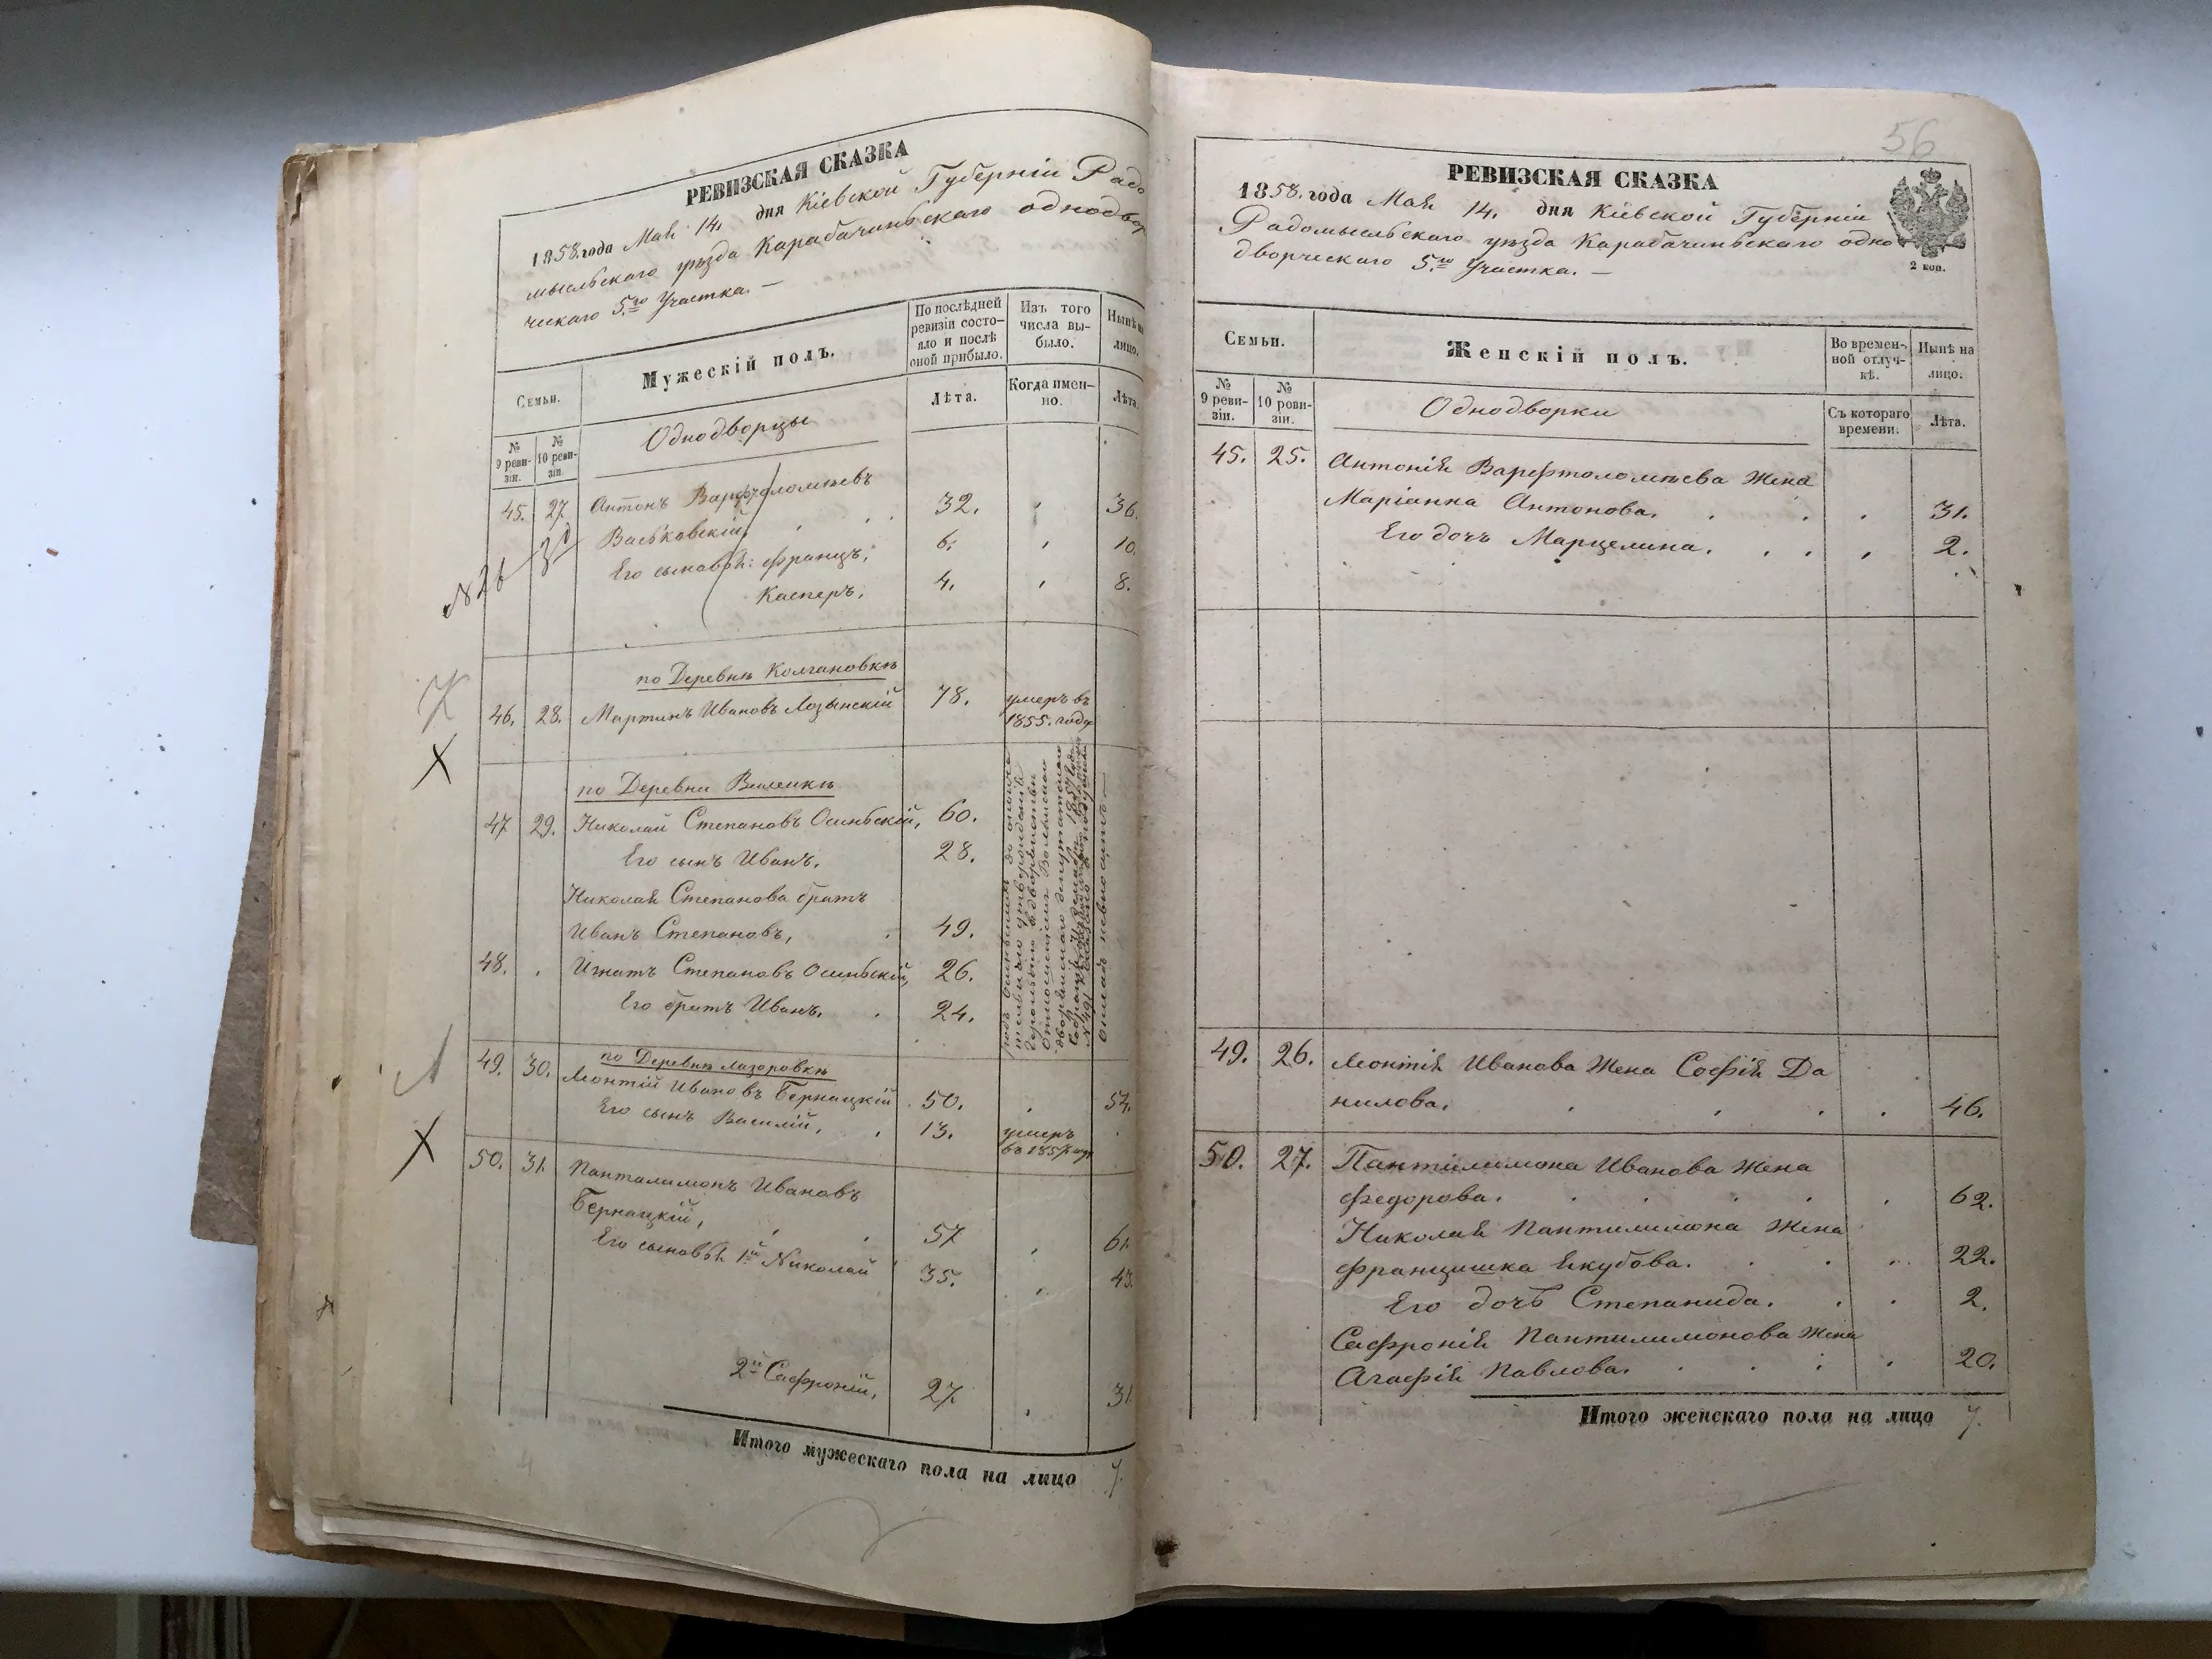 РЕВИЗСКАЯ СКАЗКА
1858. года Мая 14. дня Кіевской Губерніи Радо
мысльскаго уѣзда Карабачинскаго однодвор
ческаго 5.го Участка. —
Семьи.
Мужескій полъ.
По послѣдней ревизіи состо-
яло и послѣ
оной прибыло.
Изъ того
числа вы-
было.
Нынѣ на
лицо.
№
9 реви-
зіи.
№
10 реви-
зіи.
Однодворцы
Лѣта.
Когда имен-
но.
Лѣта.
45. 27. Антонъ Варфоломѣевъ
Васьковскій, 32. 36.
Его сыновья: Францъ, 6. 10.
Касперъ, 4. 8.
по Деревнѣ Колгановкѣ
46. 28. Мартинъ Ивановъ Лозынскій 78. умеръ въ
1855. году
по Деревни Вилейкѣ
47 29. Николай Степановъ Осинскій, 60.
Его сынъ Иванъ. 28.
Николая Степанова братъ
Иванъ Степановъ, 49.
48. Игнатъ Степановъ Осинскій, 26.
Его братъ Иванъ. 24.
по Деревнѣ Лазоровкѣ
49. 30. Леонтій Ивановъ Бернацкій 50. 54.
Его сынъ Василій, 13. умеръ
50. 31. Панталимонъ Ивановъ
Бернацкій, 57 61.
Его сыновья 1й Николай 35. 43.
2й Сафроній, 27. 31.
Итого мужескаго пола на лицо 7.
56
РЕВИЗСКАЯ СКАЗКА
1858. года Мая 14. дня Кіевской Губерніи
Радомысльскаго уѣзда Карабачинскаго одно
дворческаго 5.го Участка. —
2 коп.
Семьи.
Женскій полъ.
Во времен-
ной отлуч-
кѣ.
Нынѣ на
лицо.
№
9 реви-
зіи.
№
10 реви-
зіи.
Однодворки
Съ котораго
времени.
Лѣта.
45. 25. Антонія Варфтоломѣева Жена
Маріанна Антонова. 31.
Его дочь Марцелина. 2.
49. 26. Леонтія Иванова Жена Софія Да
нилова. 46.
50. 27. Пантилимона Иванова Жена
Федорова. 62.
Николая Пантилимона Жена
Францишка Якубова. 22.
Его дочь Степанида. 2.
Сафронія Пантилимонова Жена
Агафія Павлова. 20.
Итого женскаго пола на лицо 7.